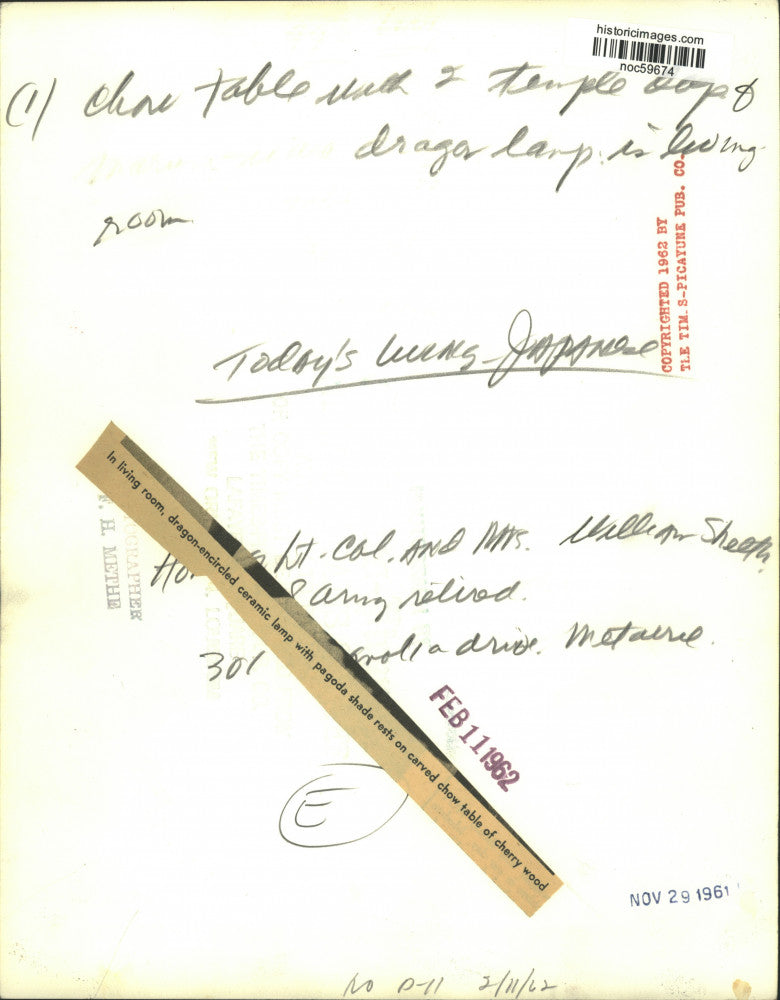 historicimages.com
noc59674
(1) chow table with 2 temple dogs &
dragon lamp. in living
room
COPYRIGHTED 1962 BY
TLE TIM.S-PICAYUNE PUB. CO.
Today's Living-Japanese
In living room, dragon-encircled ceramic lamp with pagoda shade rests on carved chow table of cherry wood
PHOTOGRAPHER
W. H. METHE
Lt. Col. and Mrs. William
Army retired.
301 drive. Metairie.
FEB 11 1962
E
NOV 29 1961
NO P-11 2/11/62